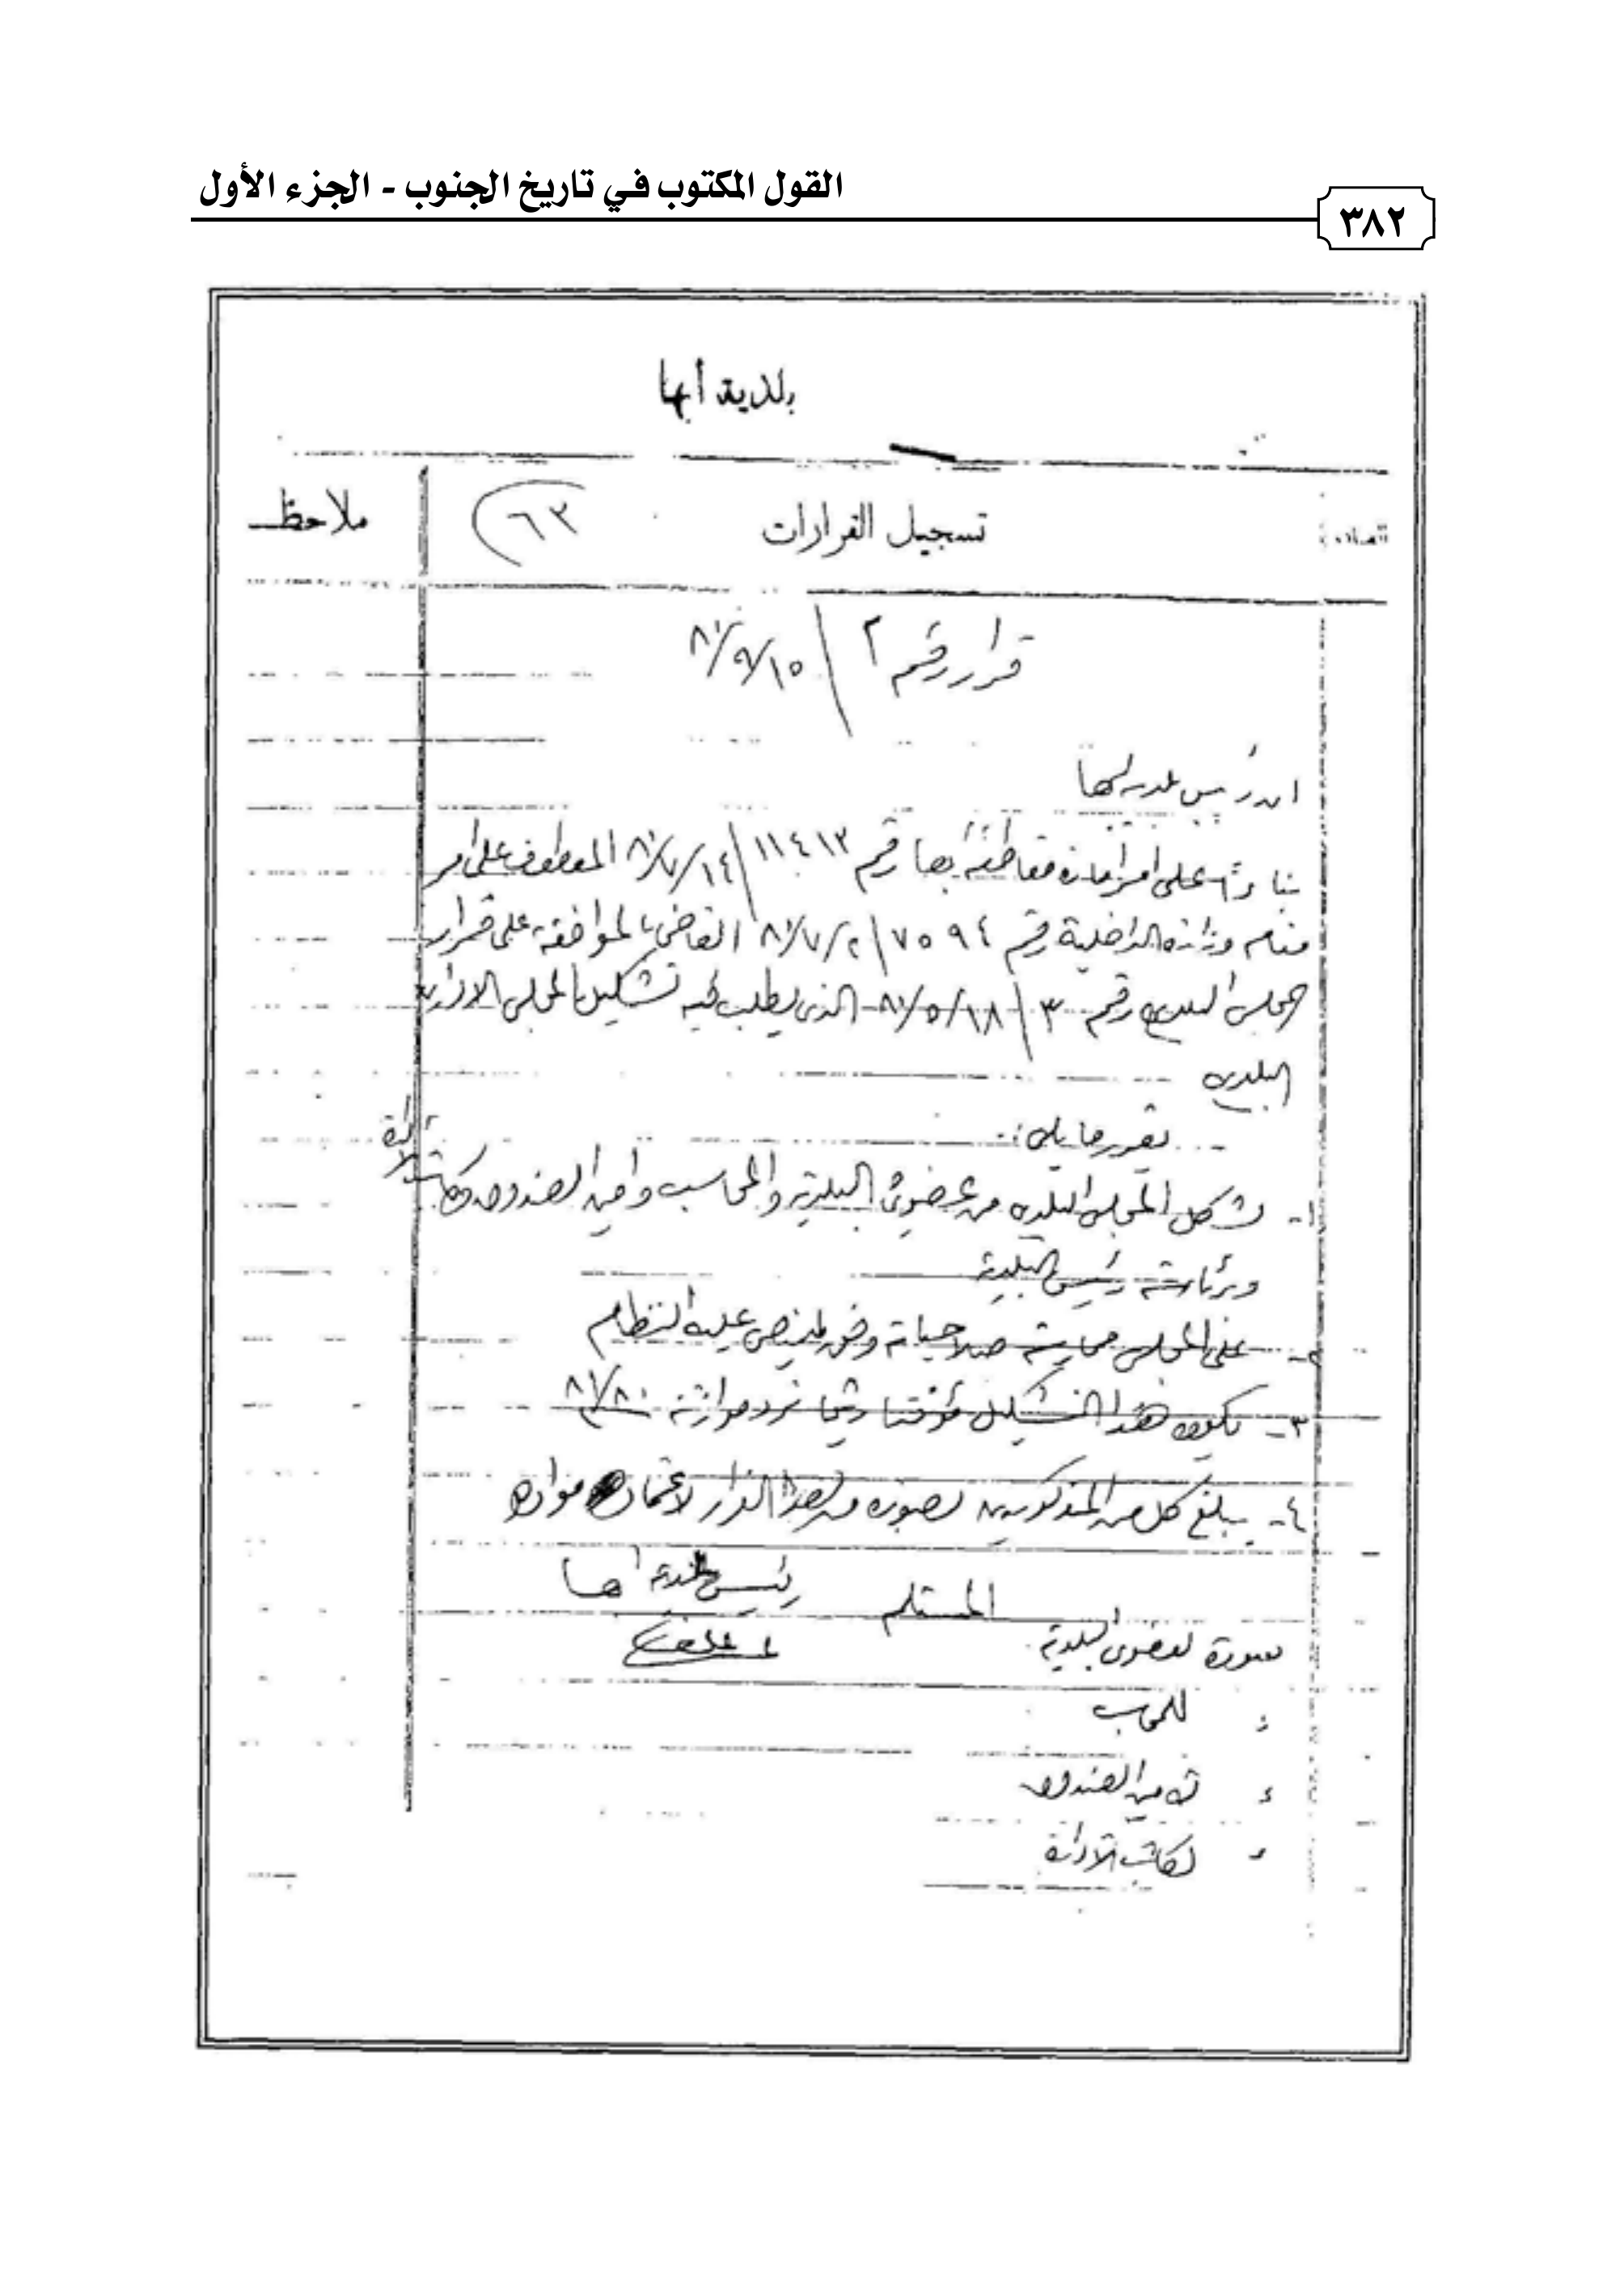 القول المكتوب في تاريخ الجنوب - الجزء الأول
٣٨٢
بلدية أبها
تسجيل القرارات
٦٣
ملاحظـ
قرار رقم ٢ / ٨١/٩/١٥
ان رئيس بلدية ابها
بناء على امر امارة مقاطعة ابها رقم ١١٤١٣ / ٨١/٧/١٤ المعطوف على امر
مقام وزارة الداخلية رقم ٧٥٩٤ / ٨١/٧/٢ القاضي بالموافقة على قرار
المجلس البلدي رقم ٣ / ٨١/٥/١٨ الذي يطلب فيه تشكيل المجلس الاداري
البلدي
يقرر ما يلي :
١- يشكل المجلس البلدي من عضوي البلدية والمحاسب وامين الصندوق وكاتب الادارة
وبرئاسة رئيس البلدية
٢- على المجلس ممارسة صلاحياته وفق ما ينص عليه النظام
٣- يكون هذا التشكيل مؤقتا ريثما ترد موازنة ٨١/٨٠
٤- يبلغ كل من المذكورين بصورة من هذا القرار لاعتماد مواده
المستلم
رئيس بلدية ابها
صورة لعضوي البلدية
للمحاسب
لامين الصندوق
لكاتب الادارة